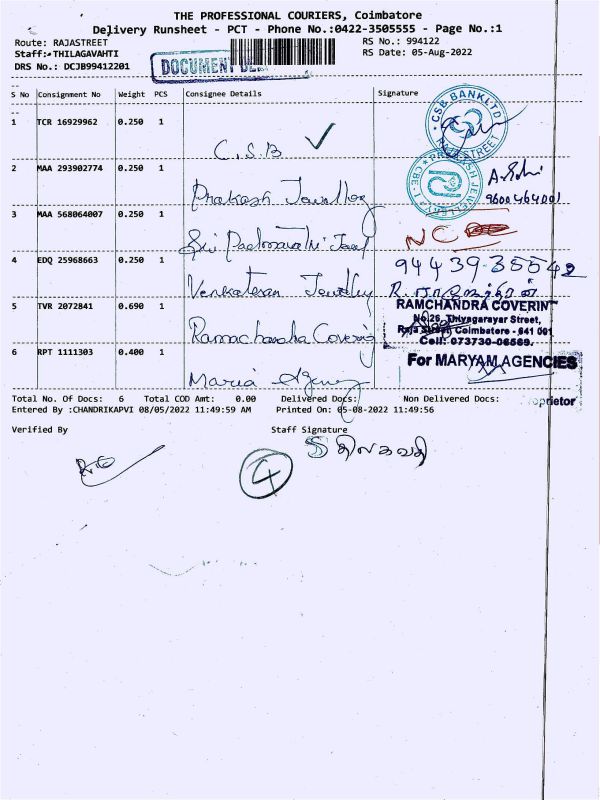 THE PROFESSIONAL COURIERS, Coimbatore
Delivery Runsheet - PCT - Phone No.:0422-3505555 - Page No.:1
Route: RAJASTREET
RS No.: 994122
Staff:-THILAGAVAHTI
RS Date: 05-Aug-2022
DRS No.: DCJB99412201
DOCUMENT
S No Consignment No Weight PCS Consignee Details Signature
CSB BANK LTD
RAJA STREET
1 TCR 16929962 0.250 1
C.S.B
2 MAA 293902774 0.250 1
Prakash Jewellery
PRAKASH JEWELLERY
CBE-1
9600464001
3 MAA 568064007 0.250 1
Sri Padmavathi Jewel
NC
4 EDQ 25968663 0.250 1
94439-35542
Venkatesan Jewellery
5 TVR 2072841 0.690 1
RAMCHANDRA COVERIN
No.25, Thiyagarayar Street,
Raja Street, Coimbatore - 641 001
Cell: 073730-06569.
Ramachandra Covering
6 RPT 1111303 0.400 1
For MARYAM AGENCIES
Maria Agency
Total No. Of Docs: 6 Total COD Amt: 0.00 Delivered Docs: Non Delivered Docs:
oprietor
Entered By :CHANDRIKAPVI 08/05/2022 11:49:59 AM Printed On: 05-08-2022 11:49:56
Verified By Staff Signature
திலகவதி
4